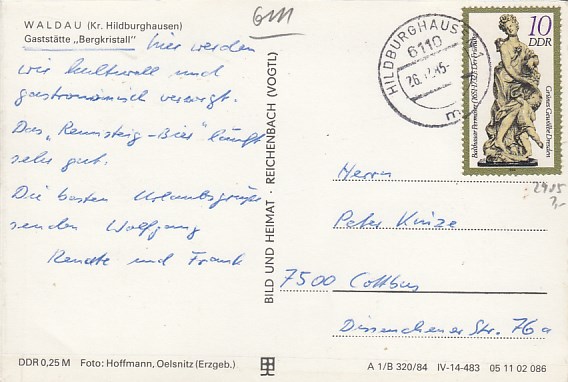 WALDAU (Kr. Hildburghausen)
Gaststätte „Bergkristall"
hier werden
wir kulturell und
gastronomisch versorgt.
Das „Rennsteig-Bier" läuft
sehr gut.
Die besten Urlaubsgrüße
senden Wolfgang
Renate und Frank
DDR 0,25 M Foto: Hoffmann, Oelsnitz (Erzgeb.)
BILD UND HEIMAT · REICHENBACH (VOGTL)
HILDBURGHAUSEN
6110
10
DDR
Balthasar Permoser (1651-1732) Der Frühling
Grünes Gewölbe Dresden
2905
3,-
Herrn
Peter Kinze
7500 Cottbus
Dissenchener Str. 76a
A 1/B 320/84 IV-14-483 05 11 02 086